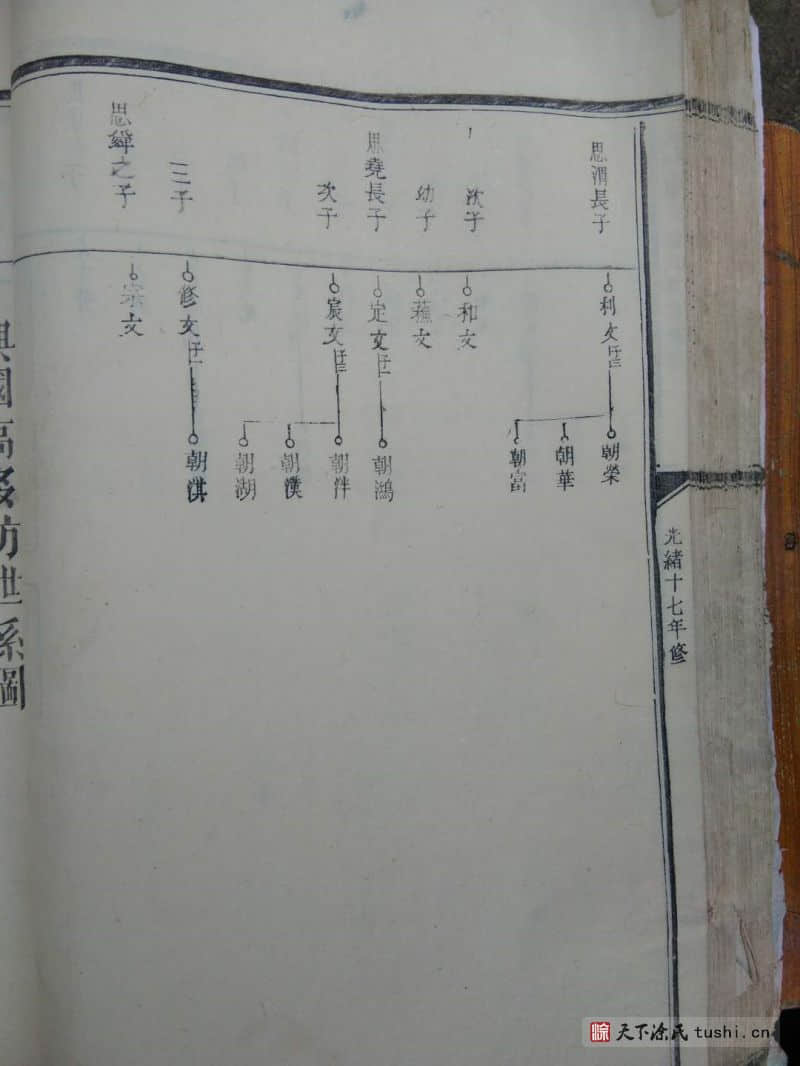 光緒十七年修
思渭長子
利文
朝榮
朝華
朝富
次子
和文
幼子
蕉文
思堯長子
定文
朝鴻
次子
宸文
朝泮
朝漢
朝湖
三子
修文
朝淇
思繹之子
宗文
興國高多坊世系圖
涂 天下涂氏 tushi.cn